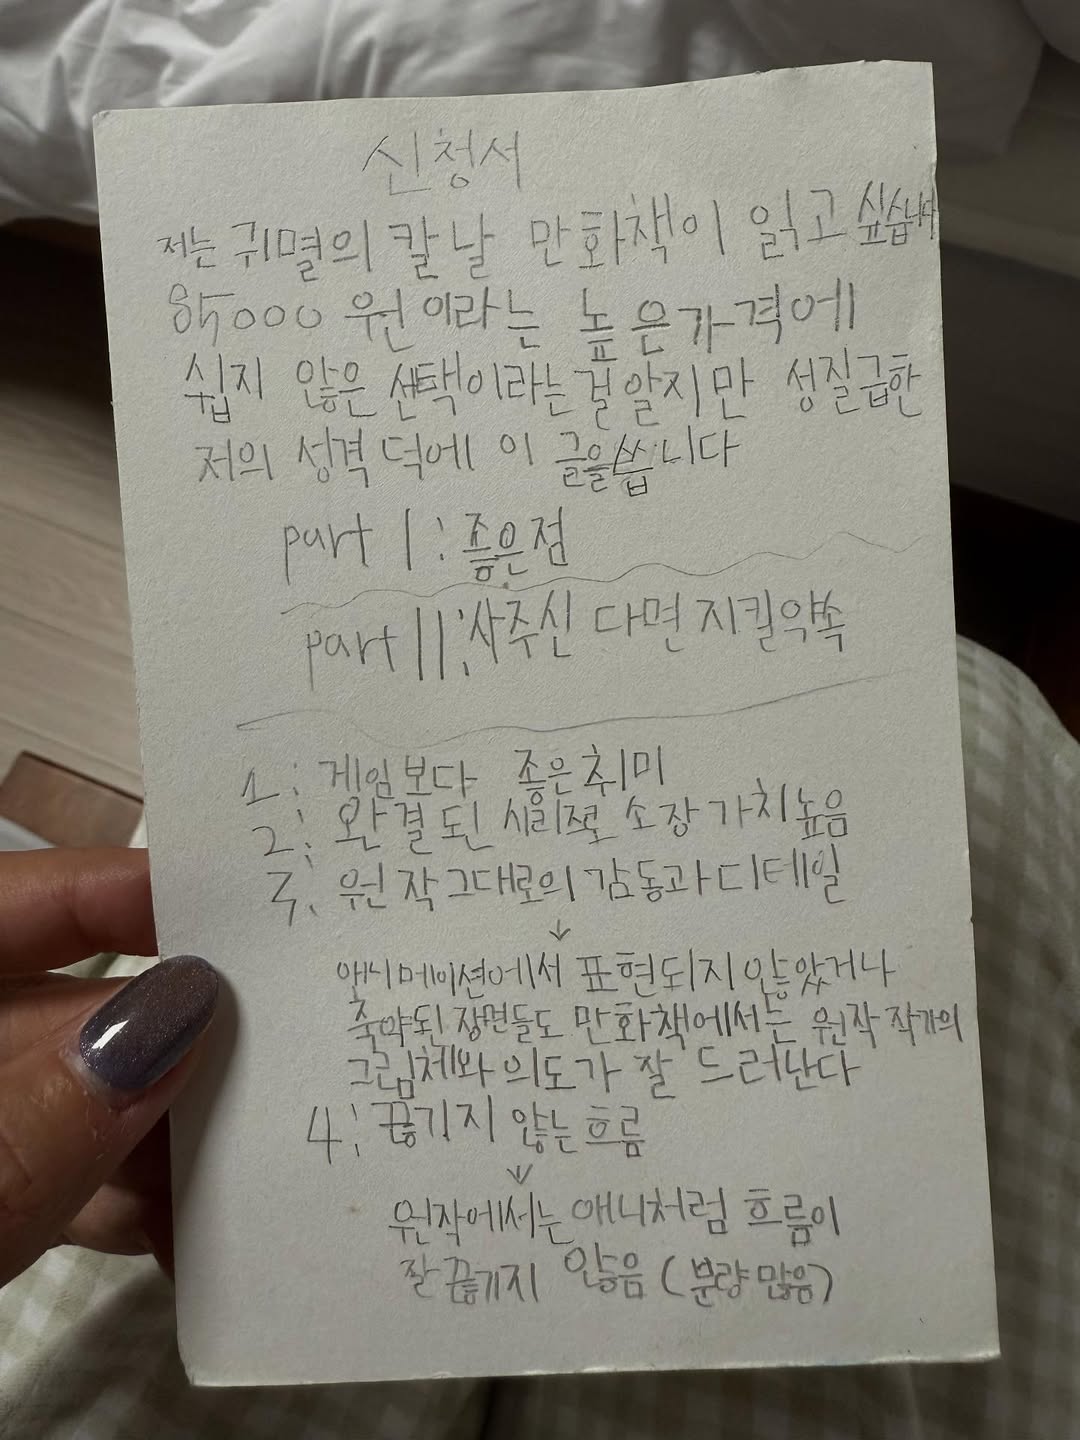 신청서
저는 귀멸의 칼날 만화책이 읽고 싶습니다
85000 원이라는 높은가격에
쉽지 않은 선택이라는걸알지만 성질급한
저의 성격 덕에 이 글을씁니다
part 1 : 좋은점
part 11: 사주신 다면 지킬약속
1: 게임보다 좋은취미
2: 완결된 시리즈로 소장 가치높음
3. 원작그대로의 감동과 디테일
↓
애니메이션에서 표현되지 않았거나
축약된 장면들도 만화책에서는 원작 작가의
그림체와 의도가 잘 드러난다
4: 끊기지 않는 흐름
↓
원작에서는 애니처럼 흐름이
잘 끊기지 않음 (분량 많음)